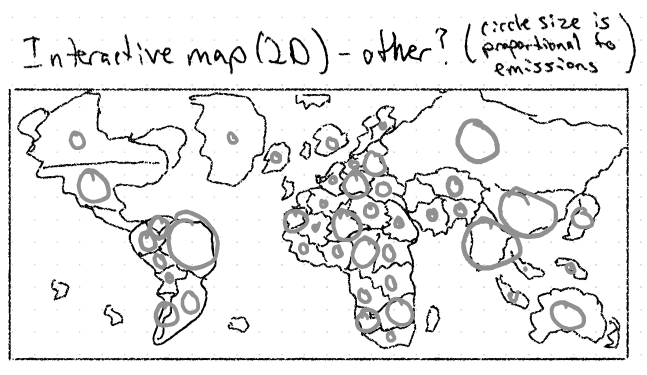 Interactive map (2D) - other? (circle size is
proportional to
emissions)